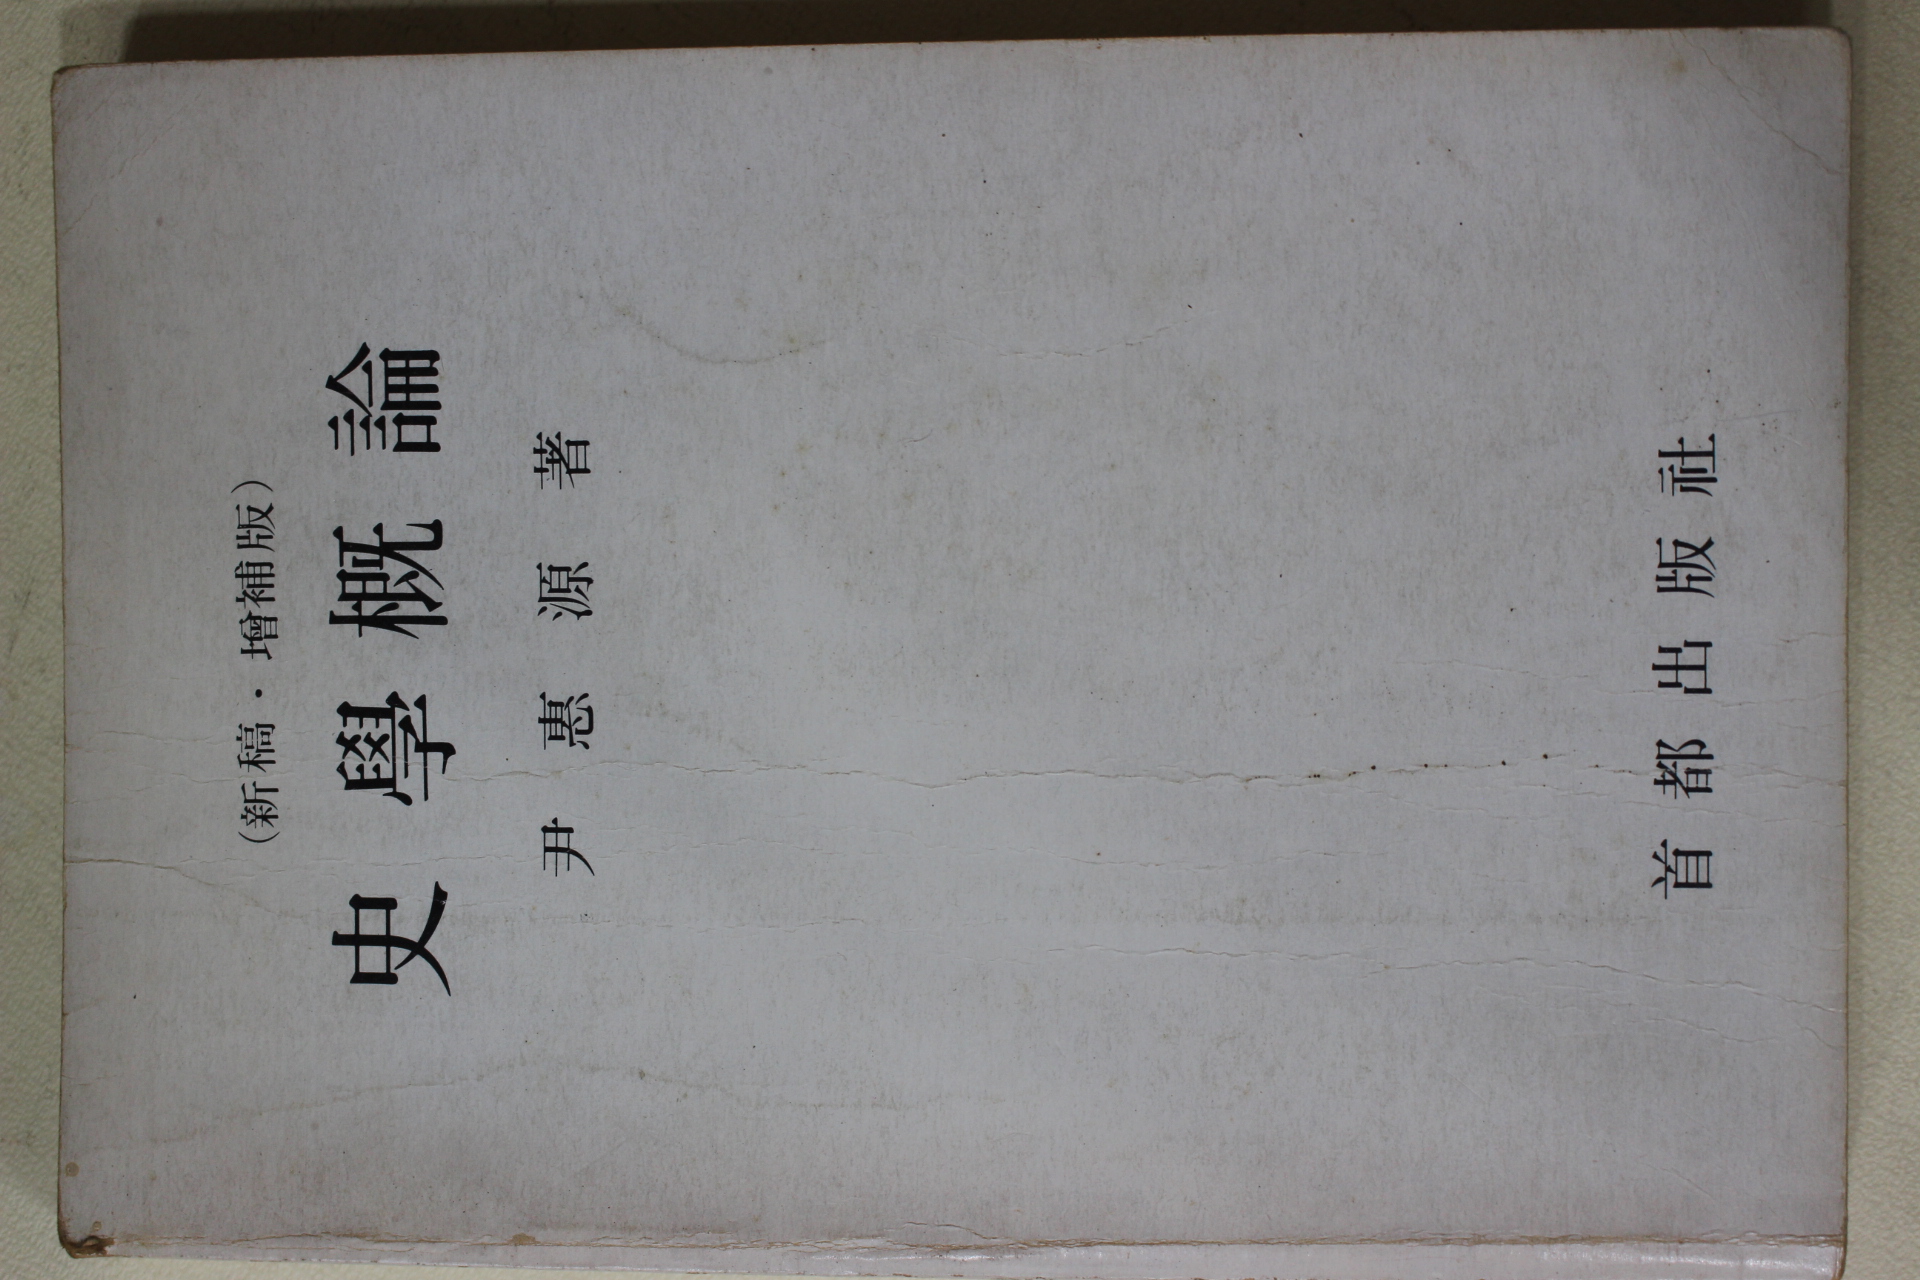 (新稿·增補版)
史學概論
尹惠源 著
首都出版社